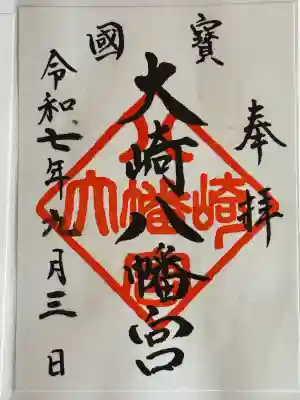 奉拝
寳
國
大崎八幡宮
令和七年九月三日
大崎八幡宮